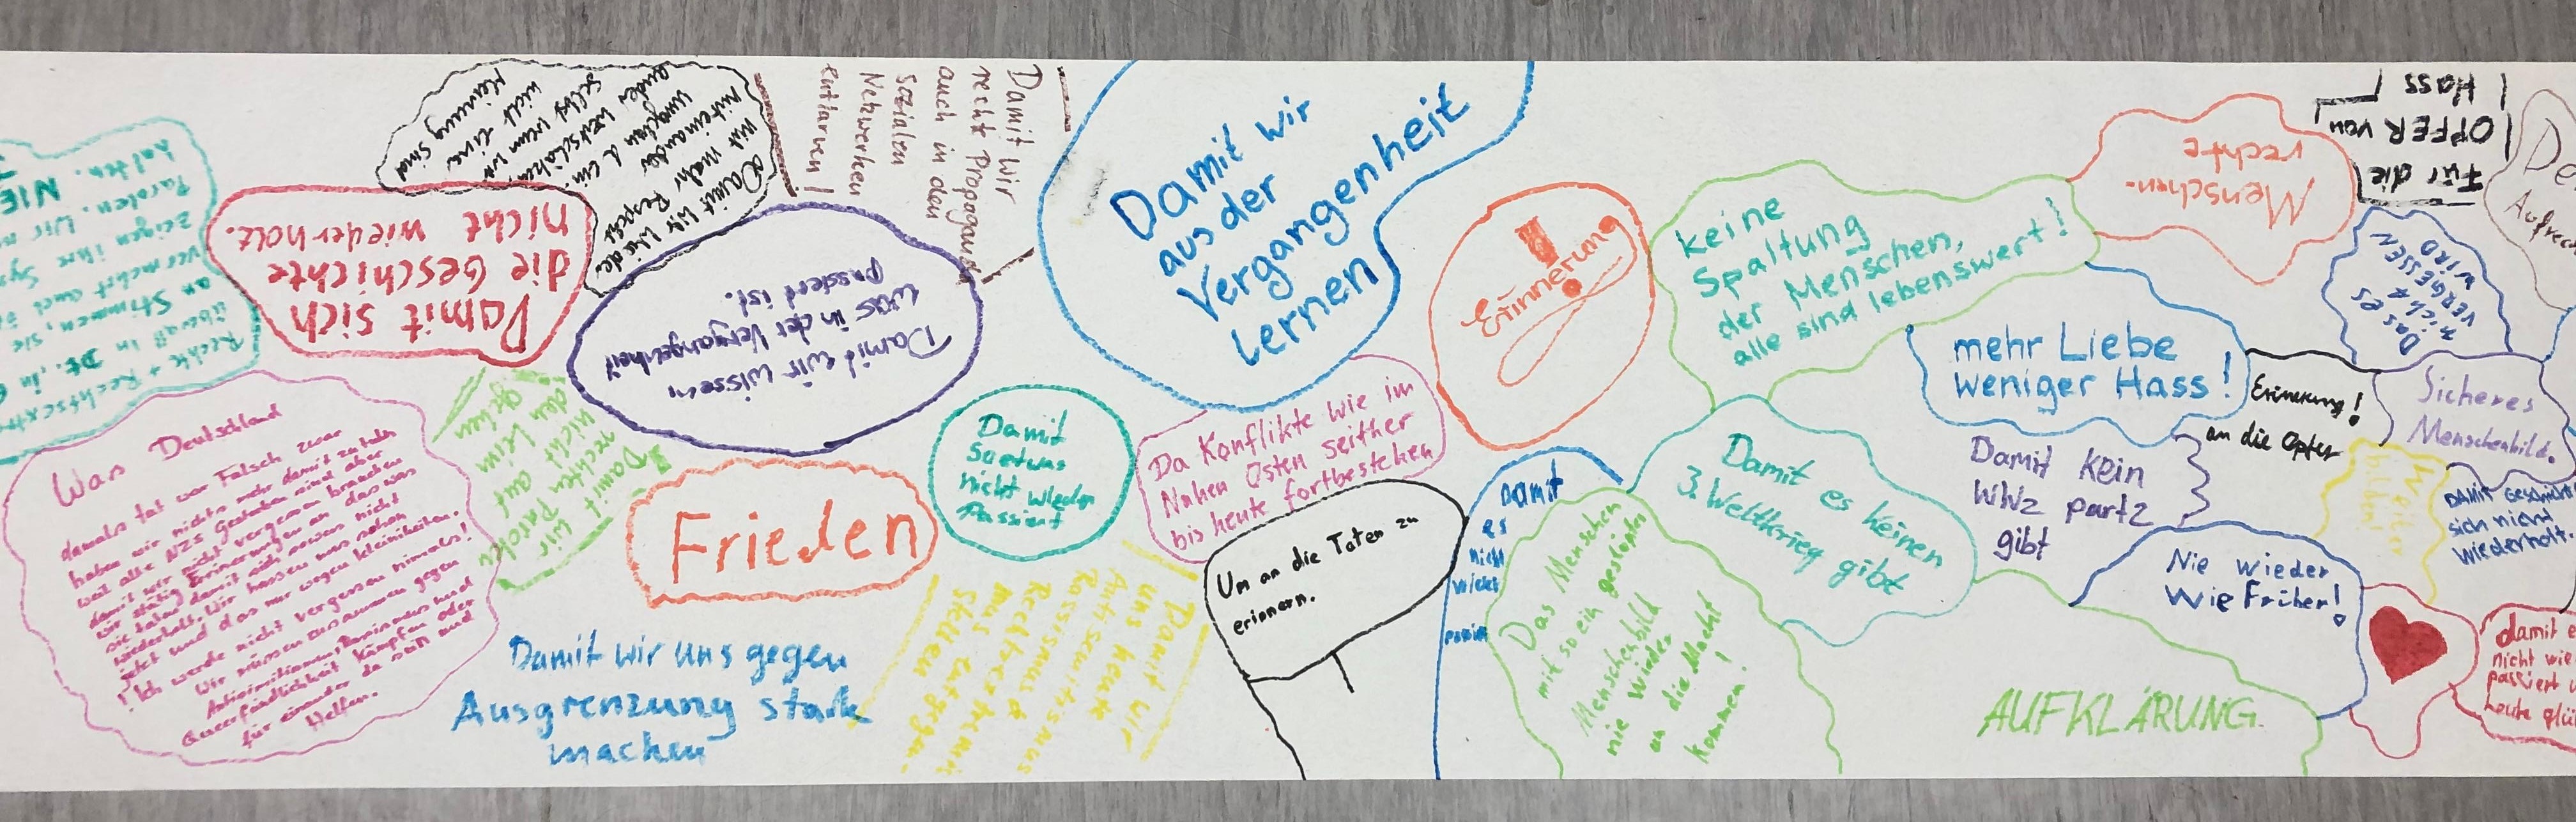 Halten. NIE
Parolen. Wir
zeigen ihre
vermehrt auch
an Stimmen, sie
überall in DE, in
Rechte + Rechtsextr
Damit sich
die Geschichte
nicht wiederholt.
Damit wir
mit mehr Respekt
miteinander
umgehen & ein-
ander wertschätzen,
selbst wenn wir
nicht eine
Meinung sind
Damit wir
recht Propagand
auch in den
sozialen
Netzwerken
entlarven!
Damit wir wissen
was in der Vergangenheit
Passiert ist.
Damit wir
aus der
Vergangenheit
lernen
Erinnerung
keine
Spaltung
der Menschen,
alle sind lebenswert!
Menschen-
rechte
Für die
OPFER von
Hass
De
Aufrech
Das es
nicht
VERGESSEN
WIRD
mehr Liebe
weniger Hass!
Erinnerung!
an die Opfer
Sicheres
Menschenbild.
Was Deutschland
damals tat war Falsch zwar
haben wir nichts mehr damit zu tun
weil alle NZS Gestorben sind aber
damit wir nicht vergessen brauchen
wir stätig Erinerungen an das was
sie taten damit sich sowas nicht
wiederholt. Wir hassen uns schon
jetzt und das nur wegen kleinikeiten.
! Ich werde nicht vergessen niemals!
Wir müssen zusammen gegen
Antisimitismus, Rasismus und
Queerfeindlichkeit kämpfen oder
für einander da sein und
Helfen.
Damit wir
nicht auf
rechten Parolen
den Leim
gehen
Frieden
Damit
Soetwas
nicht wieder
Passiert
Da Konflikte wie im
Nahen Osten seither
bis heute fortbestehen
Um an die Taten zu
erinnern.
Damit
es
nicht
wieder
passiert
Das Menschen
mit so ein gestörten
Menschenbild
nie wieder
an die Macht
kommen!
Damit es keinen
3. Weltkrieg gibt
Damit kein
WW2 part2
gibt
Weiter
bilden!
DAMIT Geschicht
sich nicht
wiederholt.
Nie wieder
Wie Früher!
Damit wir uns gegen
Ausgrenzung stark
machen
Damit wir
uns heute
Antisemitismus
Rassismus &
Rechtsextremis
mus entgegen
stellen
AUFKLÄRUNG
damit e
nicht wie
passiert
heute